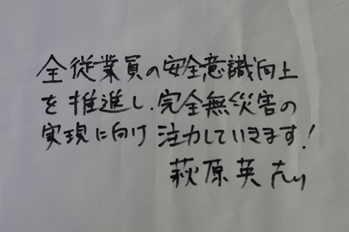 全従業員の安全意識向上
を推進し、完全無災害の
実現に向け注力していきます!
萩原英